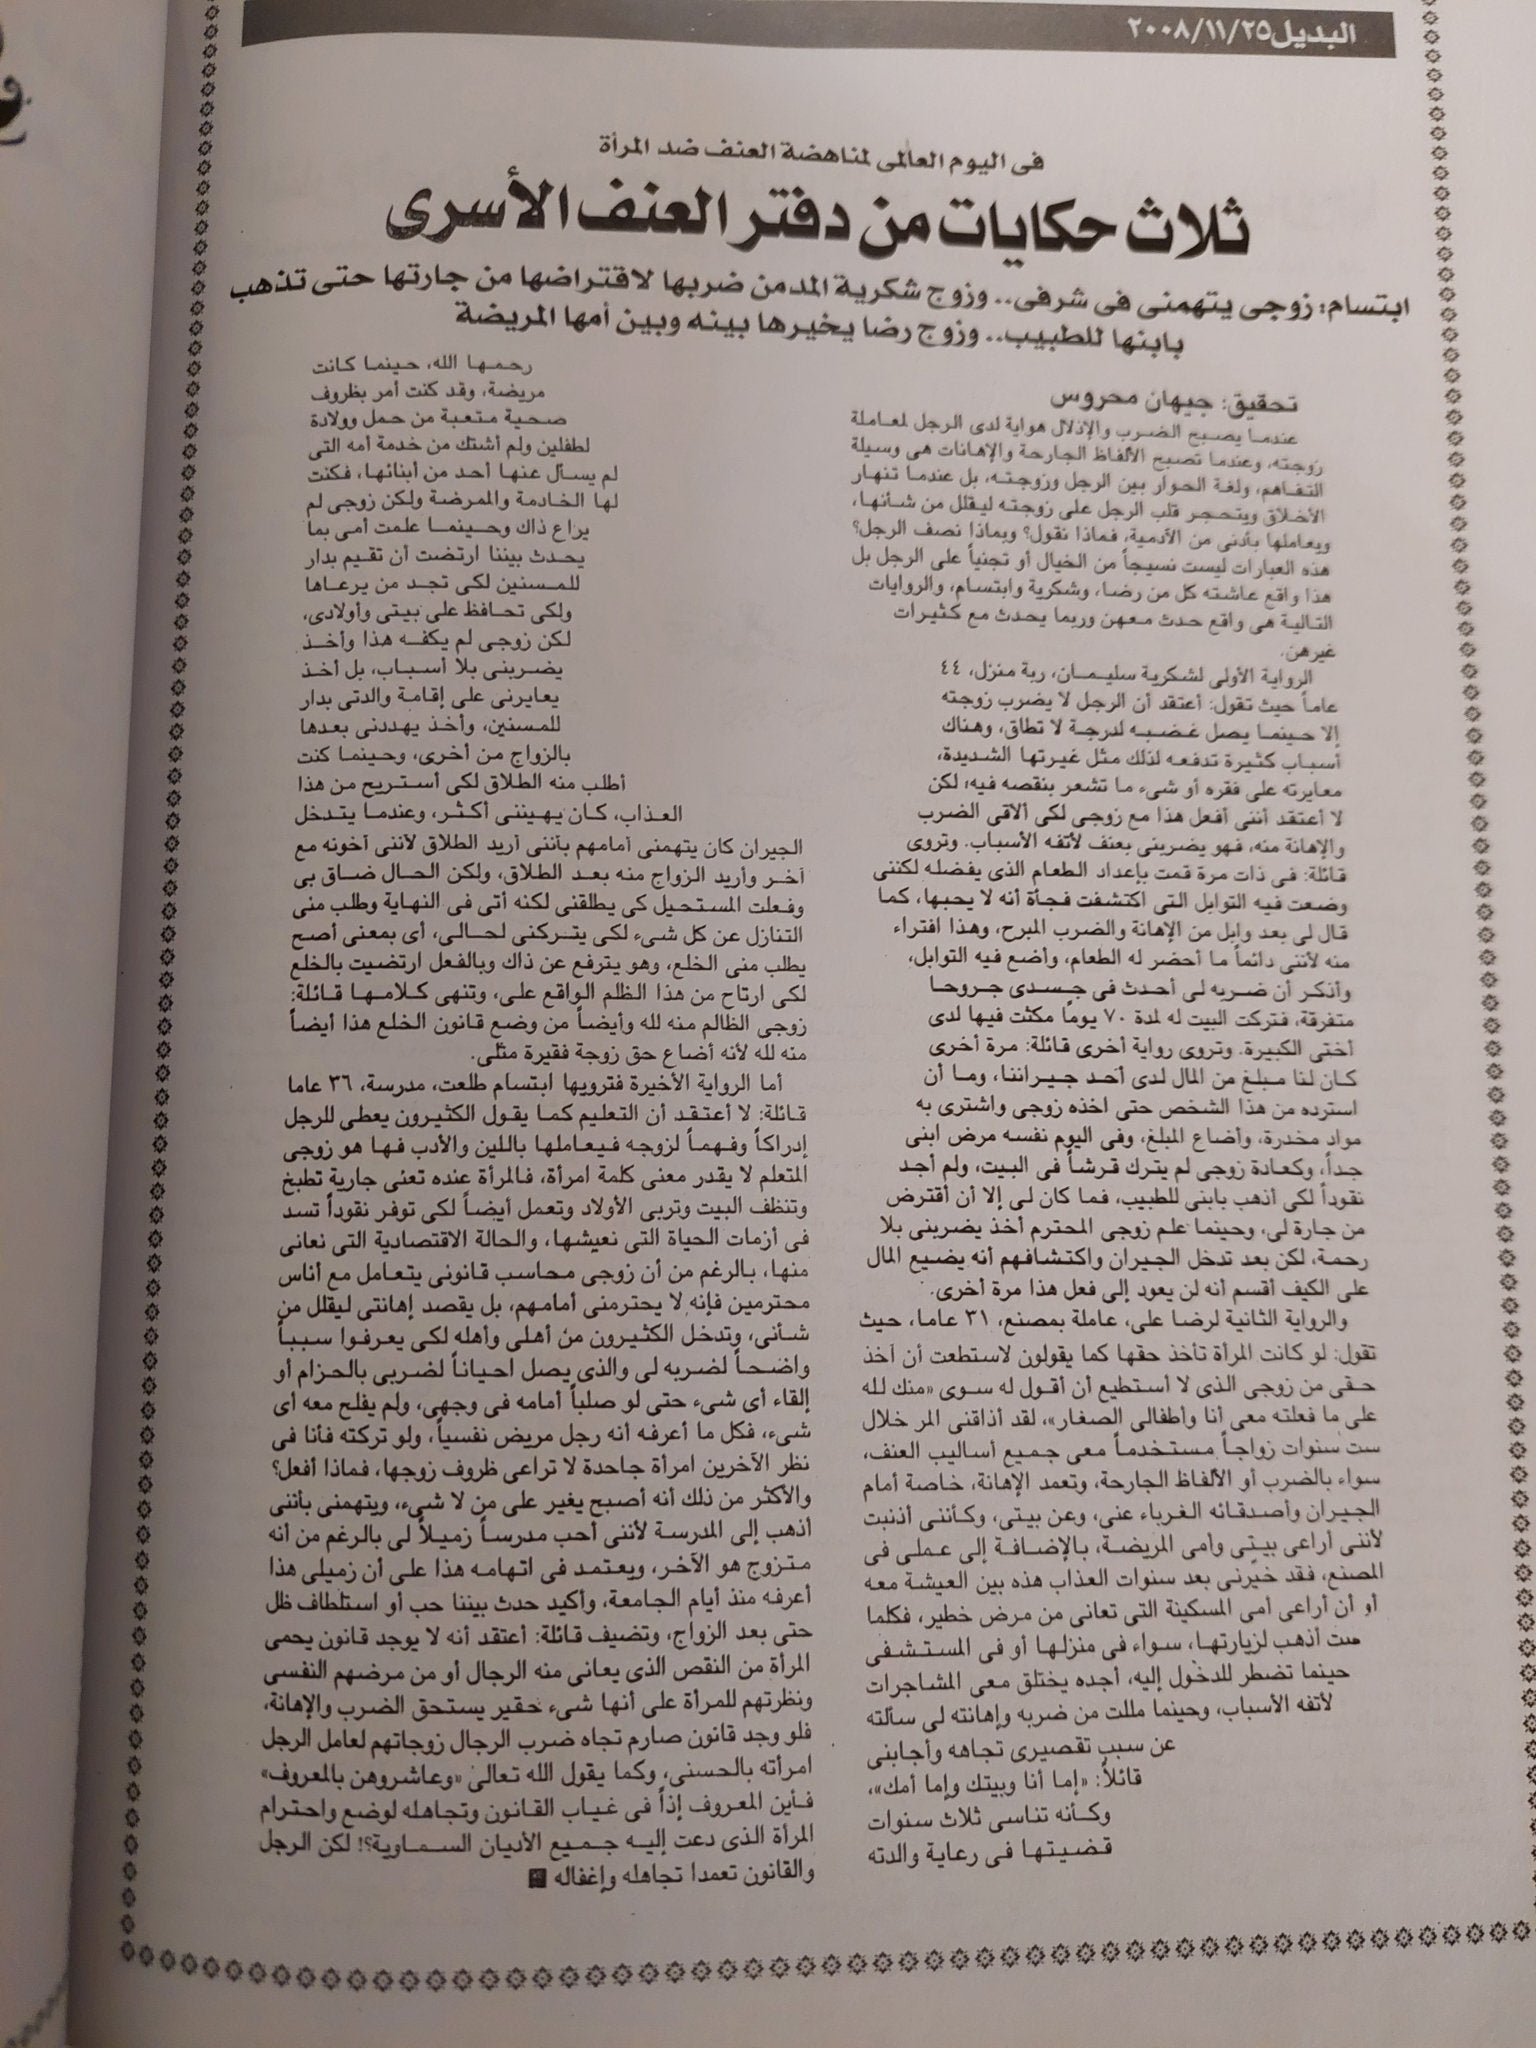 البديل ٢٠٠٨/١١/٢٥
فى اليوم العالمى لمناهضة العنف ضد المرأة
ثلاث حكايات من دفتر العنف الأسرى
ابتسام: زوجى يتهمنى فى شرفى.. وزوج شكرية المدمن ضربها لاقتراضها من جارتها حتى تذهب
بابنها للطبيب.. وزوج رضا يخيرها بينه وبين أمها المريضة
تحقيق: جيهان محروس
عندما يصبح الضرب والإذلال هواية لدى الرجل لمعاملة
زوجته، وعندما تصبح الألفاظ الجارحة والإهانات هى وسيلة
التفاهم، ولغة الحوار بين الرجل وزوجته، بل عندما تنهار
الأخلاق ويتحجر قلب الرجل على زوجته ليقلل من شأنها،
ويعاملها بأدنى من الأدمية، فماذا نقول؟ وبماذا نصف الرجل؟
هذه العبارات ليست نسيجاً من الخيال أو تجنياً على الرجل بل
هذا واقع عاشته كل من رضا، وشكرية وابتسام، والروايات
التالية هى واقع حدث معهن وربما يحدث مع كثيرات
غيرهن.
الرواية الأولى لشكرية سليمان، ربة منزل، ٤٤
عاماً حيث تقول: أعتقد أن الرجل لا يضرب زوجته
إلا حينما يصل غضبه لدرجة لا تطاق، وهناك
أسباب كثيرة تدفعه لذلك مثل غيرتها الشديدة،
معايرته على فقره أو شىء ما تشعر بنقصه فيه؛ لكن
لا أعتقد أننى أفعل هذا مع زوجى لكى ألاقى الضرب
والإهانة منه، فهو يضربنى بعنف لأتفه الأسباب. وتروى
قائلة: فى ذات مرة قمت بإعداد الطعام الذى يفضله لكننى
وضعت فيه التوابل التى اكتشفت فجأة أنه لا يحبها، كما
قال لى بعد وابل من الإهانة والضرب المبرح، وهذا افتراء
منه لأننى دائماً ما أحضر له الطعام، وأضع فيه التوابل،
وأذكر أن ضربه لى أحدث فى جسدى جروحا
متفرقة، فتركت البيت له لمدة ٧٠ يوماً مكثت فيها لدى
أختى الكبيرة. وتروى رواية أخرى قائلة: مرة أخرى
كان لنا مبلغ من المال لدى أحد جيراننا، وما أن
استرده من هذا الشخص حتى اخذه زوجى واشترى به
مواد مخدرة، وأضاع المبلغ، وفى اليوم نفسه مرض ابنى
جداً، وكعادة زوجى لم يترك قرشاً فى البيت، ولم أجد
نقوداً لكى أذهب بابنى للطبيب، فما كان لى إلا أن أقترض
من جارة لى، وحينما علم زوجى المحترم أخذ يضربنى بلا
رحمة، لكن بعد تدخل الجيران واكتشافهم أنه يضيع المال
على الكيف أقسم أنه لن يعود إلى فعل هذا مرة أخرى.
والرواية الثانية لرضا على، عاملة بمصنع، ٣١ عاما، حيث
تقول: لو كانت المرأة تأخذ حقها كما يقولون لاستطعت أن آخذ
حقى من زوجى الذى لا أستطيع أن أقول له سوى «منك لله
على ما فعلته معى أنا وأطفالى الصغار»، لقد أذاقنى المر خلال
ست سنوات زواجاً مستخدماً معى جميع أساليب العنف،
سواء بالضرب أو الألفاظ الجارحة، وتعمد الإهانة، خاصة أمام
الجيران وأصدقائه الغرباء عنى، وعن بيتى، وكأننى أذنبت
لأننى أراعى بيتى وأمى المريضة، بالإضافة إلى عملى فى
المصنع، فقد خيرنى بعد سنوات العذاب هذه بين العيشة معه
أو أن أراعى أمى المسكينة التى تعانى من مرض خطير، فكلما
أذهب لزيارتها، سواء فى منزلها أو فى المستشفى
حينما تضطر للدخول إليه، أجده يختلق معى المشاجرات
لأتفه الأسباب، وحينما مللت من ضربه وإهانته لى سألته
عن سبب تقصيرى تجاهه وأجابنى
قائلاً: «إما أنا وبيتك وإما أمك»،
وكأنه تناسى ثلاث سنوات
قضيتها فى رعاية والدته
رحمها الله، حينما كانت
مريضة، وقد كنت أمر بظروف
صحية متعبة من حمل وولادة
لطفلين ولم أشتك من خدمة أمه التى
لم يسأل عنها أحد من أبنائها، فكنت
لها الخادمة والممرضة ولكن زوجى لم
يراع ذاك وحينما علمت أمى بما
يحدث بيننا ارتضت أن تقيم بدار
للمسنين لكى تجد من يرعاها
ولكى تحافظ على بيتى وأولادى،
لكن زوجى لم يكفه هذا وأخذ
يضربنى بلا أسباب، بل أخذ
يعايرنى على إقامة والدتى بدار
للمسنين، وأخذ يهددنى بعدها
بالزواج من أخرى، وحينما كنت
أطلب منه الطلاق لكى أستريح من هذا
العذاب، كان يهيننى أكثر، وعندما يتدخل
الجيران كان يتهمنى أمامهم بأننى أريد الطلاق لأننى أخونه مع
آخر وأريد الزواج منه بعد الطلاق، ولكن الحال ضاق بى
وفعلت المستحيل كى يطلقنى لكنه أتى فى النهاية وطلب منى
التنازل عن كل شىء لكى يتركنى لحالى، أى بمعنى أصح
يطلب منى الخلع، وهو يترفع عن ذاك وبالفعل ارتضيت بالخلع
لكى ارتاح من هذا الظلم الواقع على، وتنهى كلامها قائلة:
زوجى الظالم منه لله وأيضاً من وضع قانون الخلع هذا أيضاً
منه لله لأنه أضاع حق زوجة فقيرة مثلى.
أما الرواية الأخيرة فترويها ابتسام طلعت، مدرسة، ٣٦ عاما
قائلة: لا أعتقد أن التعليم كما يقول الكثيرون يعطى للرجل
إدراكاً وفهماً لزوجه فيعاملها باللين والأدب فها هو زوجى
المتعلم لا يقدر معنى كلمة امرأة، فالمرأة عنده تعنى جارية تطبخ
وتنظف البيت وتربى الأولاد وتعمل أيضاً لكى توفر نقوداً تسد
فى أزمات الحياة التى نعيشها، والحالة الاقتصادية التى نعانى
منها، بالرغم من أن زوجى محاسب قانونى يتعامل مع أناس
محترمين فإنه لا يحترمنى أمامهم، بل يقصد إهانتى ليقلل من
شأنى، وتدخل الكثيرون من أهلى وأهله لكى يعرفوا سبباً
واضحاً لضربه لى والذى يصل احياناً لضربى بالحزام أو
إلقاء أى شىء حتى لو صلباً أمامه فى وجهى، ولم يفلح معه أى
شىء، فكل ما أعرفه أنه رجل مريض نفسياً، ولو تركته فأنا فى
نظر الآخرين امرأة جاحدة لا تراعى ظروف زوجها، فماذا أفعل؟
والأكثر من ذلك أنه أصبح يغير على من لا شىء، ويتهمنى بأننى
أذهب إلى المدرسة لأننى أحب مدرساً زميلاً لى بالرغم من أنه
متزوج هو الآخر، ويعتمد فى اتهامه هذا على أن زميلى هذا
أعرفه منذ أيام الجامعة، وأكيد حدث بيننا حب أو استلطاف ظل
حتى بعد الزواج، وتضيف قائلة: أعتقد أنه لا يوجد قانون يحمى
المرأة من النقص الذى يعانى منه الرجال أو من مرضهم النفسى
ونظرتهم للمرأة على أنها شىء حقير يستحق الضرب والإهانة،
فلو وجد قانون صارم تجاه ضرب الرجال زوجاتهم لعامل الرجل
امرأته بالحسنى، وكما يقول الله تعالى «وعاشروهن بالمعروف»
فأين المعروف إذاً فى غياب القانون وتجاهله لوضع واحترام
المرأة الذى دعت إليه جميع الأديان السماوية؟! لكن الرجل
والقانون تعمدا تجاهله وإغفاله